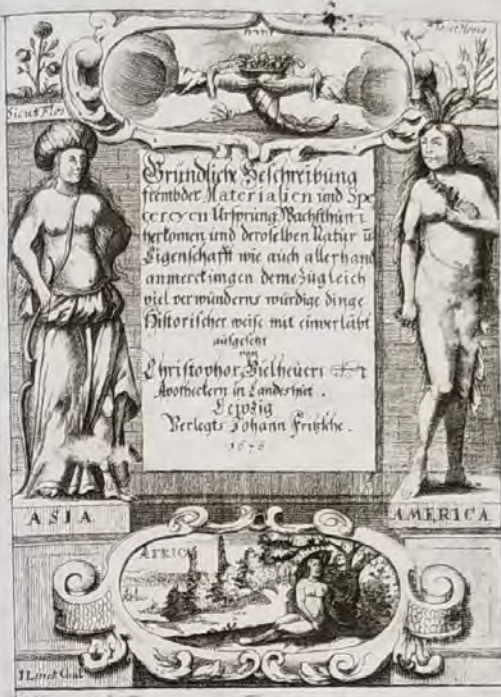 Sicut Flos
Gründliche Beschreibung
frembder Materialien und Spe
cereyen Ursprung, Wachsthum
herkomen und deroselben Natur ū
Eigenschafft wie auch allerhand
anmerckungen deme zugleich
viel verwunderns würdige dinge
Historischer weise mit einverleibt
aufgesetzt
von
Christophor Vielheuern
Apotheckern in Landeshut.
Leipzig
Verlegts Johann Fritzsche.
1676
ASIA
AMERICA
AFRICA